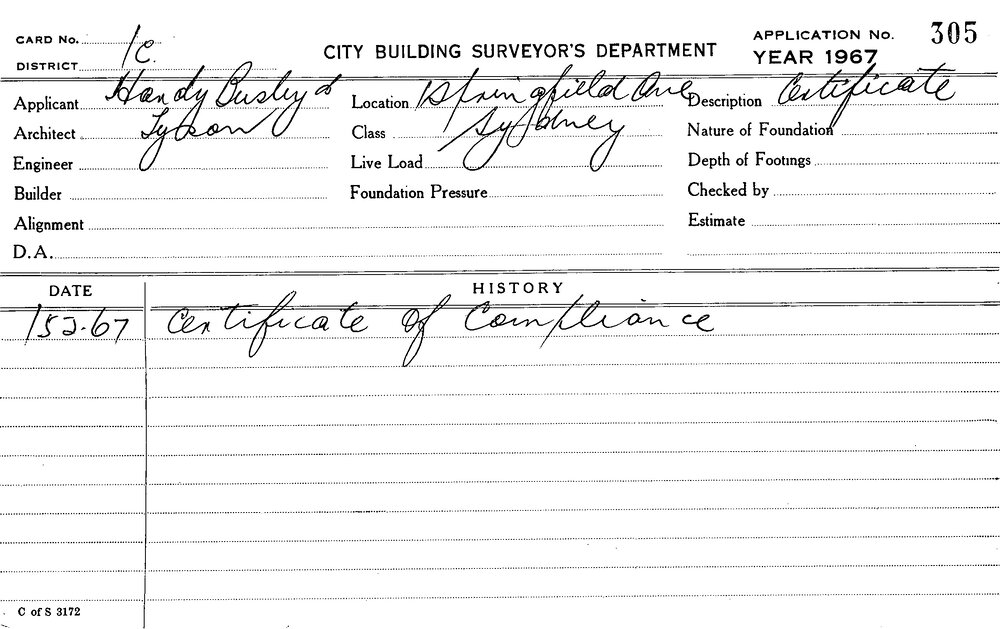 CARD No. 1C.
DISTRICT
CITY BUILDING SURVEYOR'S DEPARTMENT
APPLICATION No. 305
YEAR 1967
Applicant Handy Busby &
Location 1 Springfield Ave
Description Certificate
Architect Tyson
Class Sydney
Nature of Foundation
Engineer
Live Load
Depth of Footings
Builder
Foundation Pressure
Checked by
Alignment
Estimate
D.A.
DATE
HISTORY
152.67 Certificate of Compliance
C of S 3172